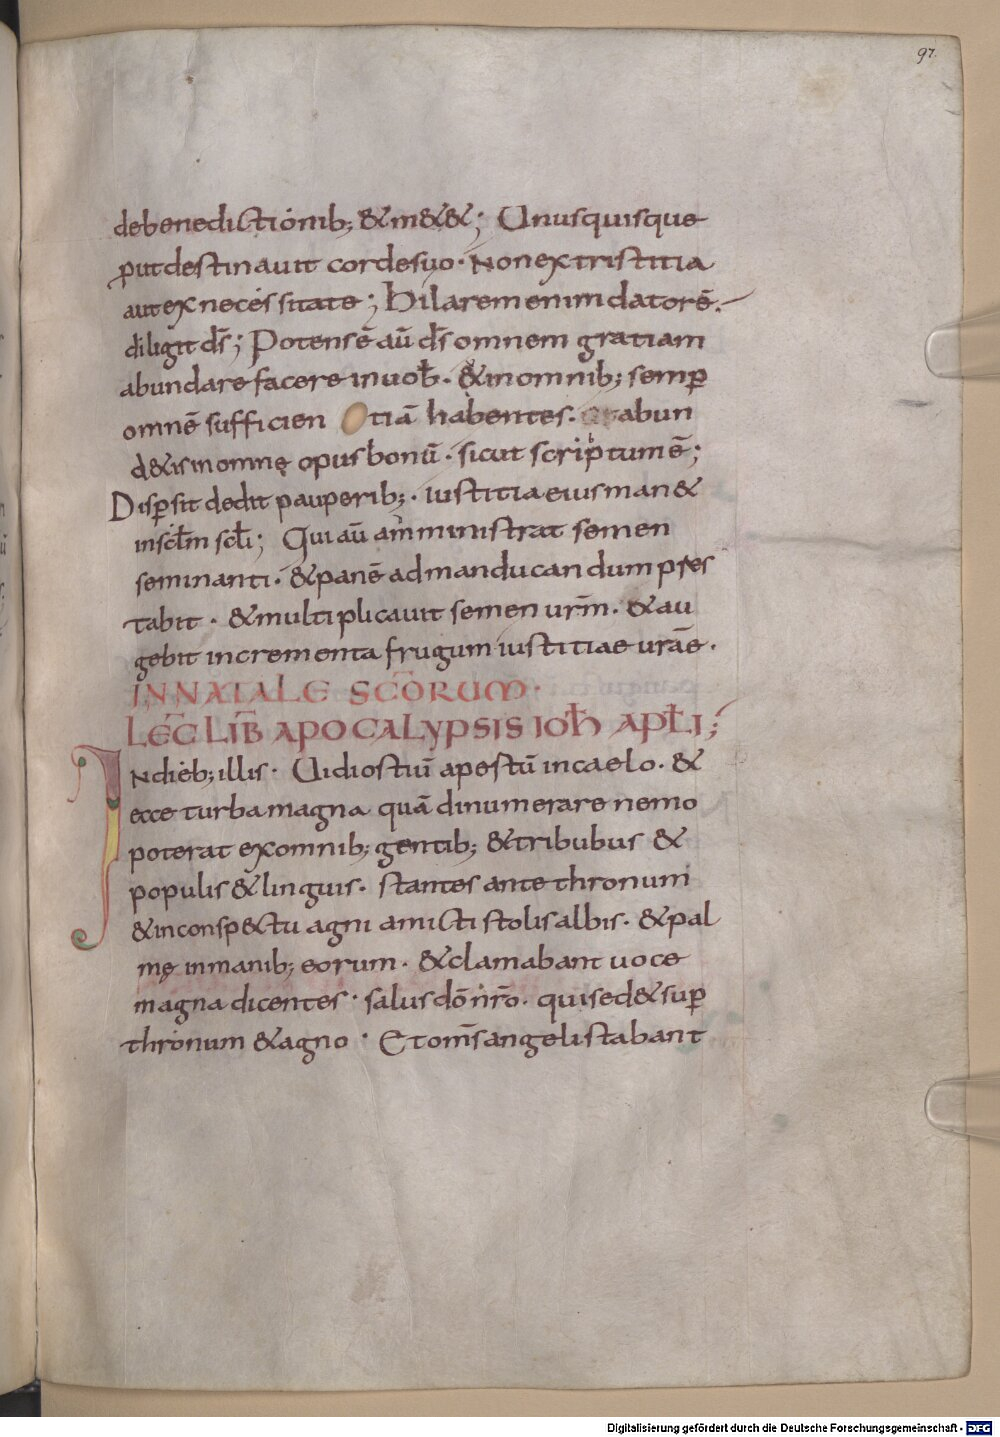 97.
debenedictionib; & m&&; Unusquisque
ꝓut destinauit cordesuo. Nonex tristitia
aut ex necessitate; Hilarem enim datorē.
diligit ds̄; Potens ē aū ds̄ omnem gratiam
abundare facere inuob̄. & inomnib; semꝑ
omnē sufficien tiā habentes. abun
d&is in omnę opus bonū. sicut scriptum ē;
Dispsit dedit pauperib;. iustitia eius man&
insc̄lm sc̄li; Qui aū amministrat semen
seminanti. & panē admanducandum pres
tabit. & multiplicauit semen urm̄. & au
gebit incrementa frugum iustitiae urāe.
IN NATALE SC̄ORUM.
LEC̄ LIB̄ APOCALYPSIS IOH̄ APL̄I;
INdieb; illis. Uidi ostiū apestū incaelo. &
ecce turba magna quā dinumerare nemo
poterat ex omnib; gentib; & tribubus &
populis & linguis. stantes ante thronum
& inconsp&ctu agni amicti stolis albis. & pal
mę inmanib; eorum. & clamabant uoce
magna dicentes. salus dō nrō. qui sed& suꝑ
thronum & agno. Et oms̄ angeli stabant
Digitalisierung gefördert durch die Deutsche Forschungsgemeinschaft - DFG